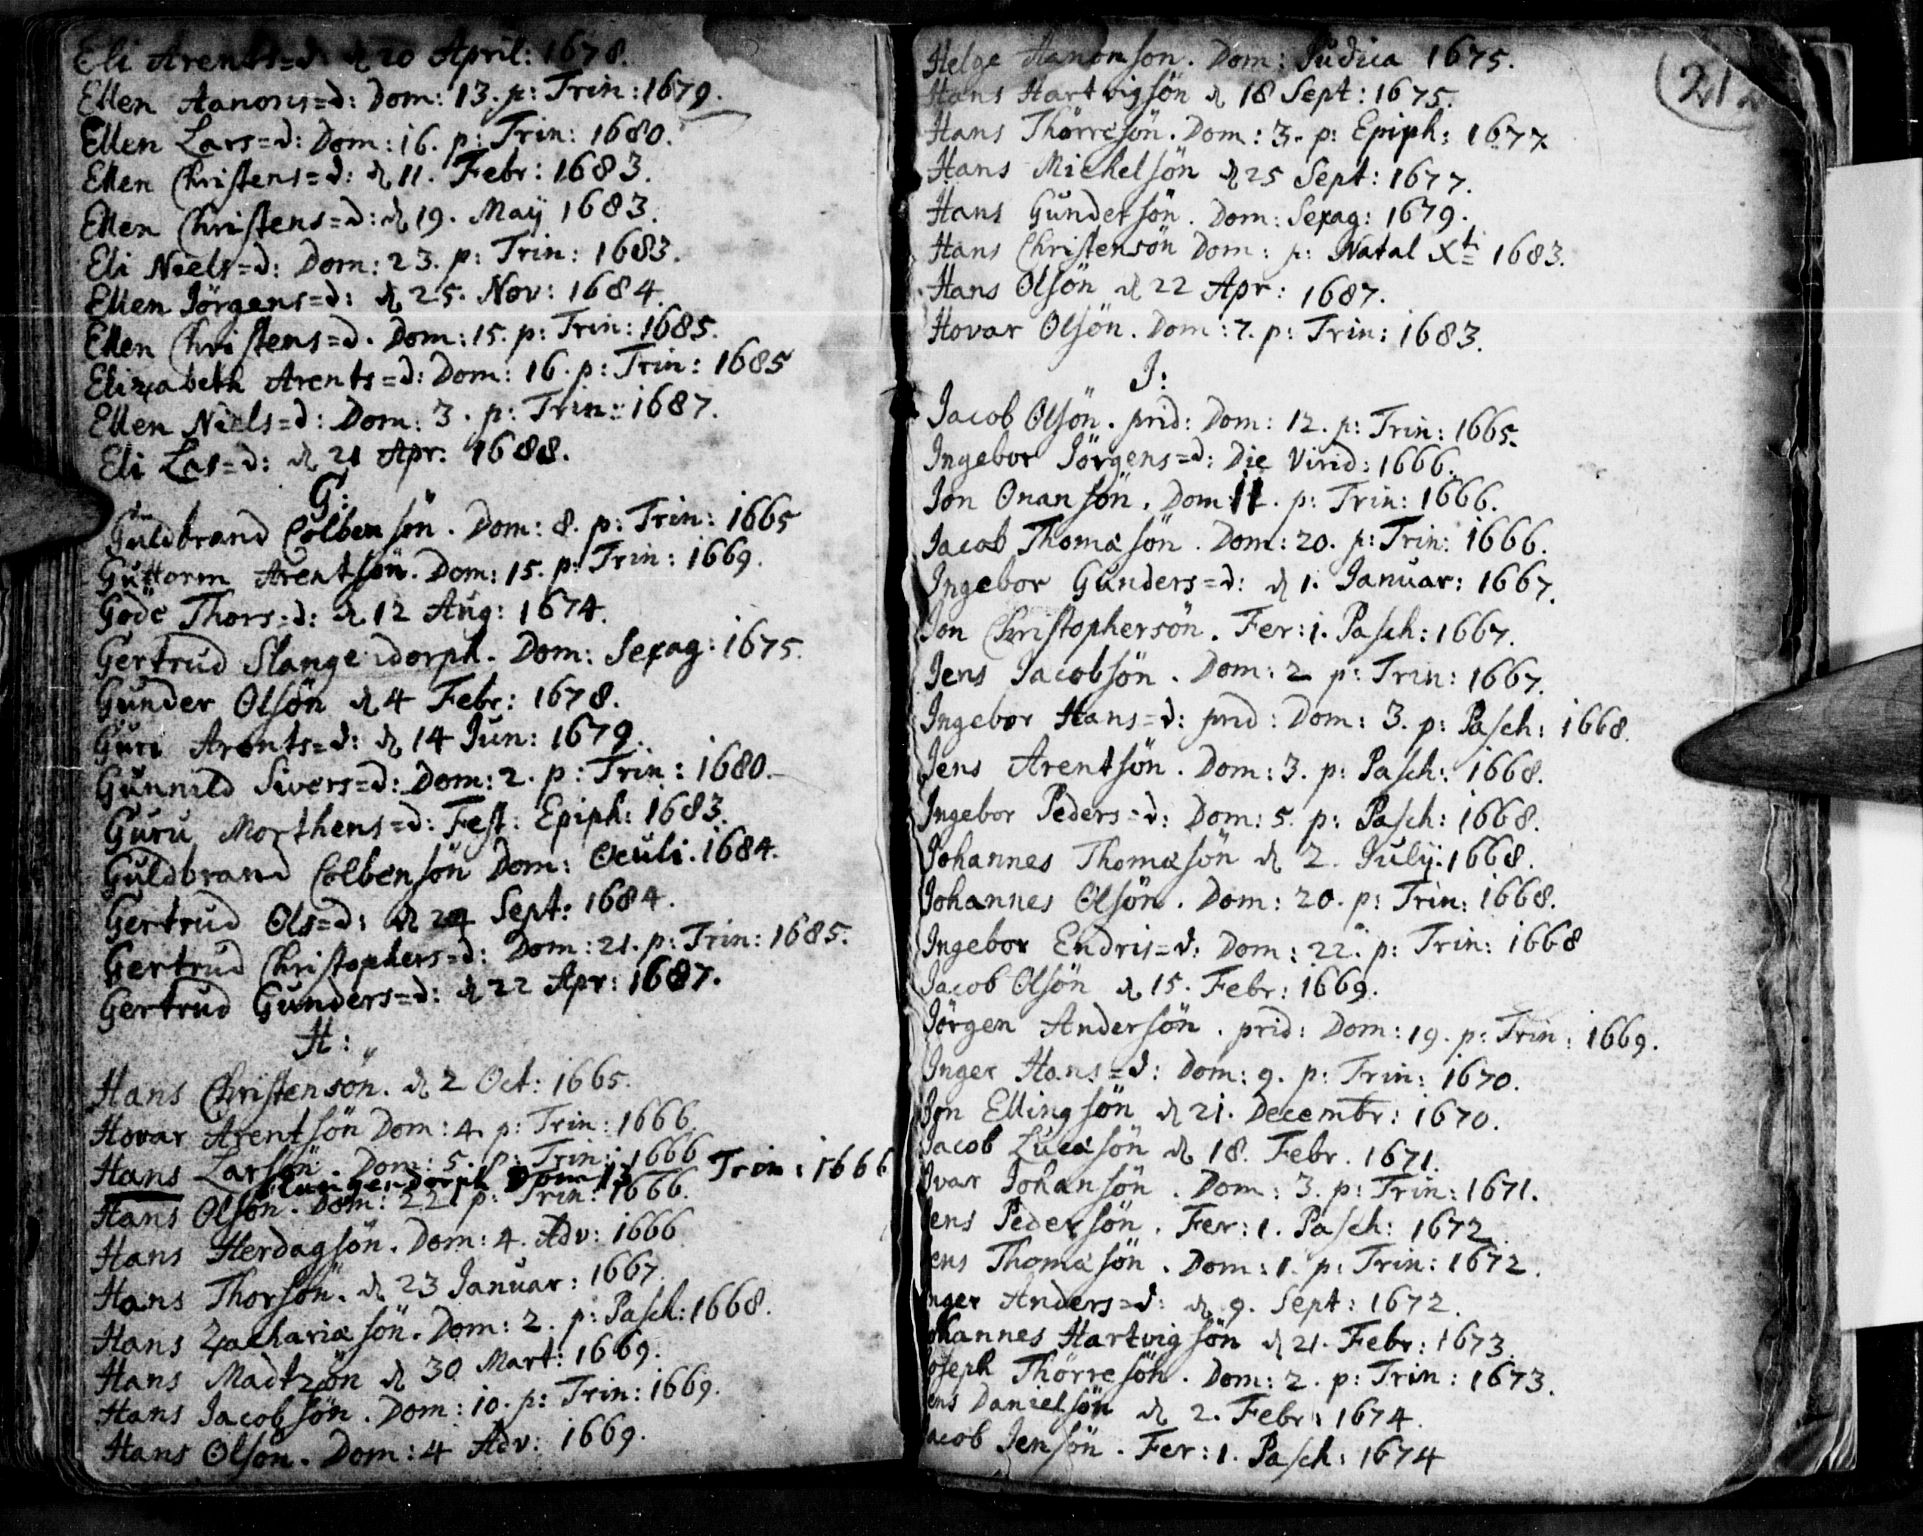 Eli Arents=d: d 20 April: 1678.
Ellen Aanons=d: Dom: 13. p: Trin: 1679.
Ellen Lars=d: Dom: 16. p: Trin: 1680.
Ellen Christens=d: d 11. Febr: 1683.
Ellen Christens=d: d 19. Maÿ 1683.
Eli Niels=d: Dom: 23. p: Trin: 1683.
Ellen Jörgens=d: d 25. Nov: 1684.
Ellen Christens=d. Dom: 15. p: Trin: 1685.
Elizabeth Arents=d: Dom: 16. p: Trin: 1685
Ellen Niels=d: Dom: 3. p: Trin: 1687.
Eli Las=d: d 21 Apr: 1688.
G:
Guldbrand Colbensön. Dom: 8. p: Trin: 1665
Guttorm Arentsön. Dom: 15. p: Trin: 1669.
Göde Thors=d: d 12 Aug: 1674.
Gertrud Slangendorph. Dom: Sexag: 1675.
Gunder Olsön d 4 Febr: 1678.
Guri Arents=d: d 14 Jun: 1679.
Gunnild Sivers=d: Dom: 2. p: Trin: 1680.
Guru Morthens=d: Fest: Epiph: 1683.
Guldbrand Colbensön Dom: Oculi. 1684.
Gertrud Ols=d: d 24 Sept: 1684.
Gertrud Christophers=d: Dom: 21. p: Trin: 1685.
Gertrud Gunders=d: d 22 Apr: 1687.
H:
Hans Christensön. d 2 Oct: 1665.
Hovar Arentsön Dom: 4. p: Trin: 1666.
Hans Larsön. Dom: 5. p: Trin: 1666
Slangendorph Dom 13 Trin: 1666
Hans Olsön. Dom: 22 p: Trin: 1666.
Hans Herdagsön. Dom: 4. Adv: 1666
Hans Thorsön. d 23 Januar: 1667.
Hans Zachariæsön. Dom: 2. p: Pasch: 1668.
Hans Madtzön d 30 Mart: 1669.
Hans Jacobsön. Dom: 10. p: Trin: 1669.
Hans Olsön. Dom: 4 Adv: 1669.
212
Helge Aanonson. Dom: Judica 1675.
Hans Hartvigsön d 18 Sept: 1675.
Hans Thörresön. Dom: 3. p: Epiph: 1677
Hans Michelsön d 25 Sept: 1677.
Hans Gundersön. Dom: Sexag: 1679.
Hans Christensön Dom: p: Natal Xti 1683.
Hans Olsön d 22 Apr: 1687.
Hovar Olsön. Dom: 7. p: Trin: 1683.
J:
Jacob Olsön. prid: Dom: 12. p: Trin: 1665.
Ingebor Jörgens=d: Die Virid: 1666.
Jon Onansön. Dom 11. p: Trin: 1666.
Jacob Thomæsön. Dom: 20. p: Trin: 1666.
Ingebor Gunders=d: d 1. Januar: 1667.
Jon Christophersön. Fer: 1. Pasch: 1667.
Jens Jacobsön. Dom: 2 p: Trin: 1667.
Ingebor Hans=d: prid: Dom: 3. p: Pasch: 1668.
Jens Arentsön. Dom: 3. p: Pasch: 1668.
Ingebor Peders=d: Dom: 5. p: Pasch: 1668.
Johannes Thomæsön d 2. July. 1668.
Johannes Olsön. Dom: 20. p: Trin: 1668.
Ingebor Endris=d: Dom: 22. p: Trin: 1668
Jacob Olsön d 15. Febr: 1669.
Jörgen Andersön. prid: Dom: 19. p: Trin: 1669.
Inger Hans=d: Dom: 9. p: Trin: 1670.
Jon Ellingsön d 21. Decembr: 1670.
Jacob Lucæsön d 18. Febr. 1671.
Ivar Johansön. Dom: 3. p: Trin: 1671.
Jens Pedersön. Fer: 1. Pasch: 1672
Jens Thomæsön. Dom: 1. p: Trin: 1672.
Inger Anders=d: d 9. Sept: 1672.
Johannes Hartvigsön d 21. Febr: 1673.
Joseph Thörresön. Dom: 2. p: Trin: 1673.
Jens Danielsön d 2. Febr: 1674.
Jacob Jensön. Fer: 1. Pasch: 1674